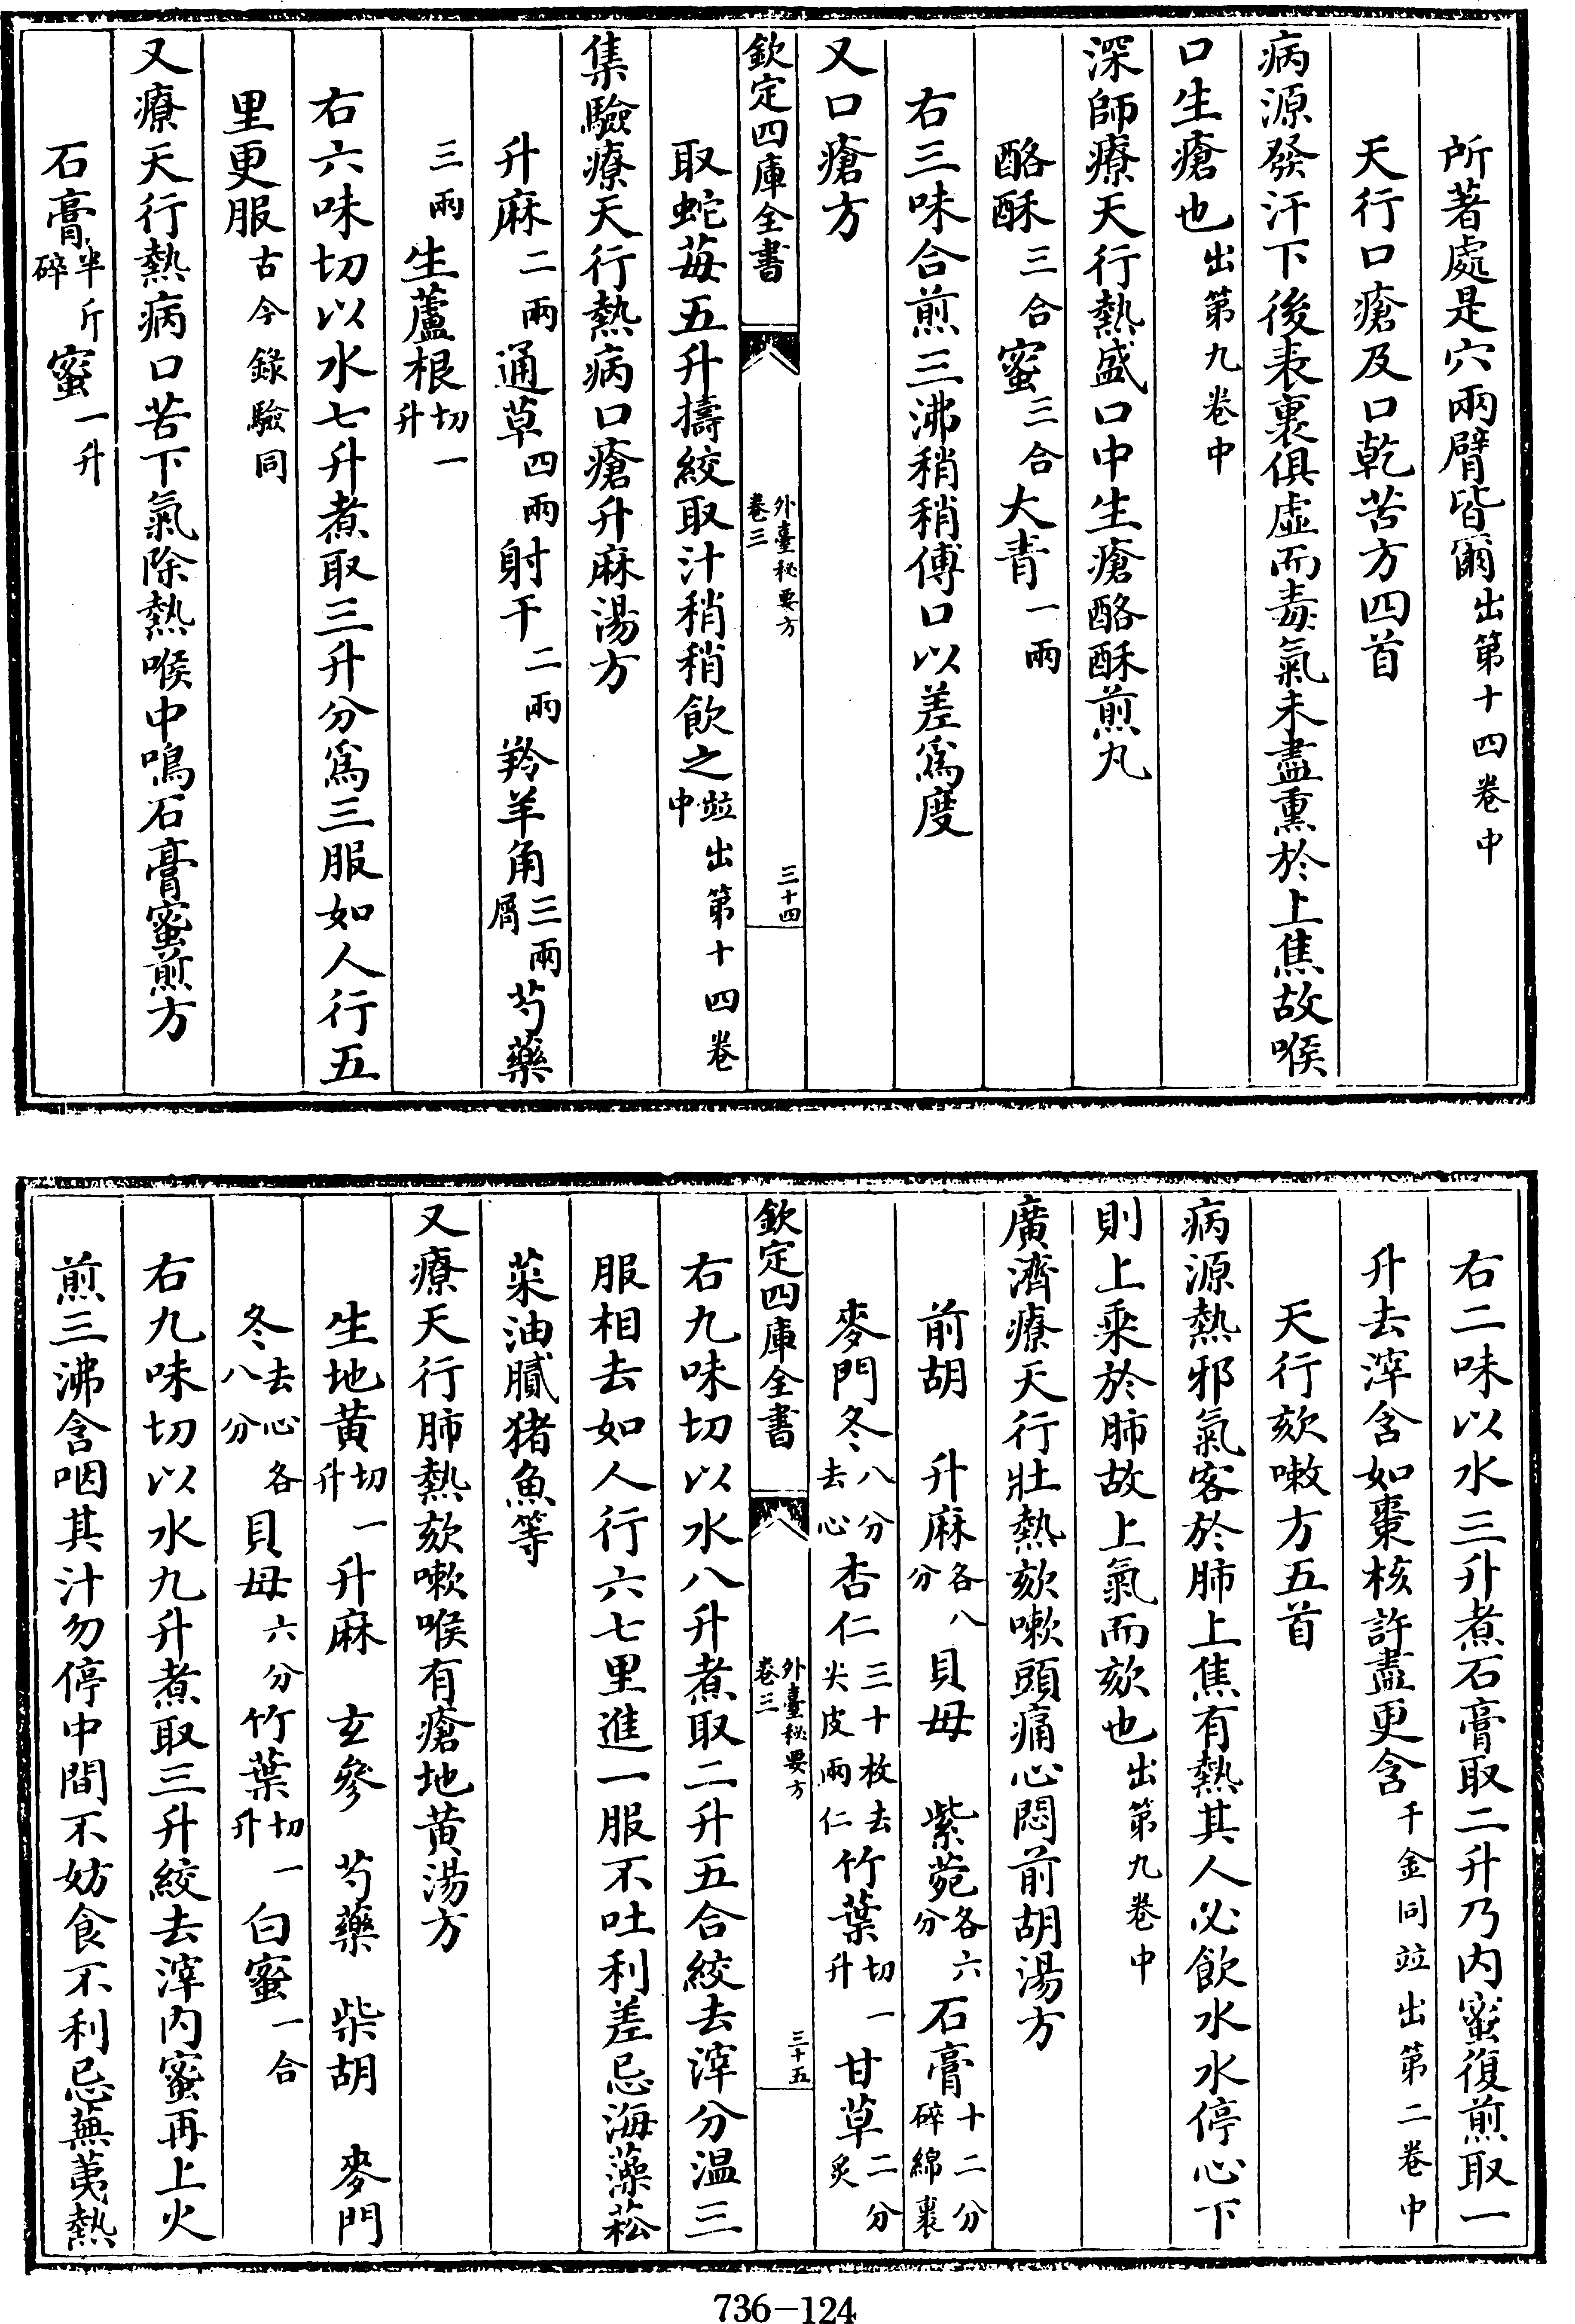 所著處是穴兩臂皆爾出第十四卷中
天行口瘡及口乾苦方四首
病源發汗下後表裏俱虛而毒氣未盡熏於上焦故喉
口生瘡也出第九卷中
深師療天行熱盛口中生瘡酪酥煎丸
酪酥三合蜜三合大青一兩
右三味合煎三沸稍稍傅口以差為度
又口瘡方
欽定四庫全書
外臺秘要方
卷三
三十四
取蛇莓五升擣絞取汁稍稍飲之竝出第十四卷中
集驗療天行熱病口瘡升麻湯方
升麻二兩通草四兩射干二兩羚羊角三兩屑芍藥
三兩生蘆根切一升
右六味切以水七升煮取三升分為三服如人行五
里更服古今錄驗同
又療天行熱病口苦下氣除熱喉中鳴石膏蜜煎方
石膏半斤碎蜜一升
右二味以水三升煮石膏取二升乃内蜜復煎取一
升去滓含如棗核許盡更含千金同竝出第二卷中
天行欬嗽方五首
病源熱邪氣客於肺上焦有熱其人必飲水水停心下
則上乘於肺故上氣而欬也出第九卷中
廣濟療天行壯熱欬嗽頭痛心悶前胡湯方
前胡 升麻各八分貝母 紫菀各六分石膏十二分碎綿裹
麥門冬八分去心杏仁三十枚去尖皮兩仁竹葉切一升甘草二分炙
欽定四庫全書
外臺秘要方
卷三
三十五
右九味切以水八升煮取二升五合絞去滓分温三
服相去如人行六七里進一服不吐利差忌海藻菘
菜油膩猪魚等
又療天行肺熱欬嗽喉有瘡地黄湯方
生地黄切一升升麻 玄參 芍藥 柴胡 麥門
冬去心各八分貝母六分竹葉切一升白蜜一合
右九味切以水九升煮取三升絞去滓内蜜再上火
煎三沸含咽其汁勿停中間不妨食不利忌蕪荑熱
736-124